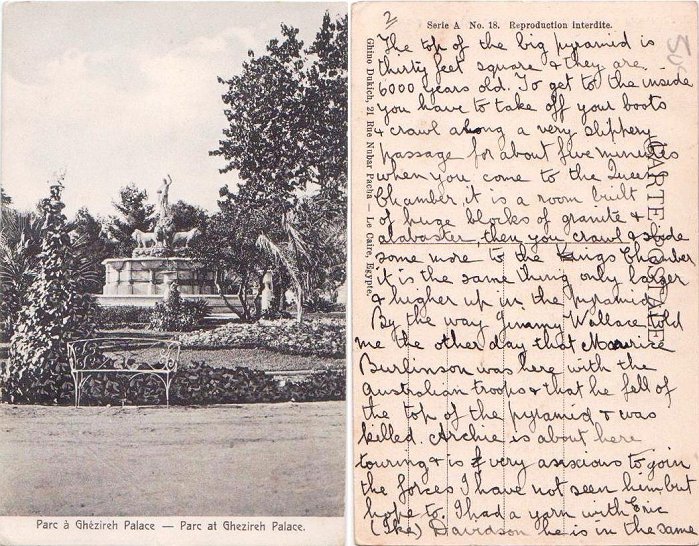 Parc à Ghèzireh Palace — Parc at Ghezireh Palace.
2
Serie A No. 18. Reproduction interdite.
Ghino Dukich, 21 Rue Nubar Pacha — Le Caire, Egypte.
CARTE POSTALE
50
The top of the big pyramid is
thirty feet square & they are
6000 years old. To get to the inside
you have to take off your boots
& crawl along a very slippery
passage for about five minutes
when you come to the Queens
Chamber, it is a room built
of huge blocks of granite &
alabaster, then you crawl & slide
some more to the Kings Chamber
it is the same thing only larger
& higher up in the pyramid
By the way Jimmy Wallace told
me the other day that Maurice
Burlinson was here with the
Australian troops & that he fell of
the top of the pyramid & was
killed. Archie is about here
touring & is very anxious to join
the forces I have not seen him but
hope to. I had a yarn with Eric
(Ike) Davidson he is in the same